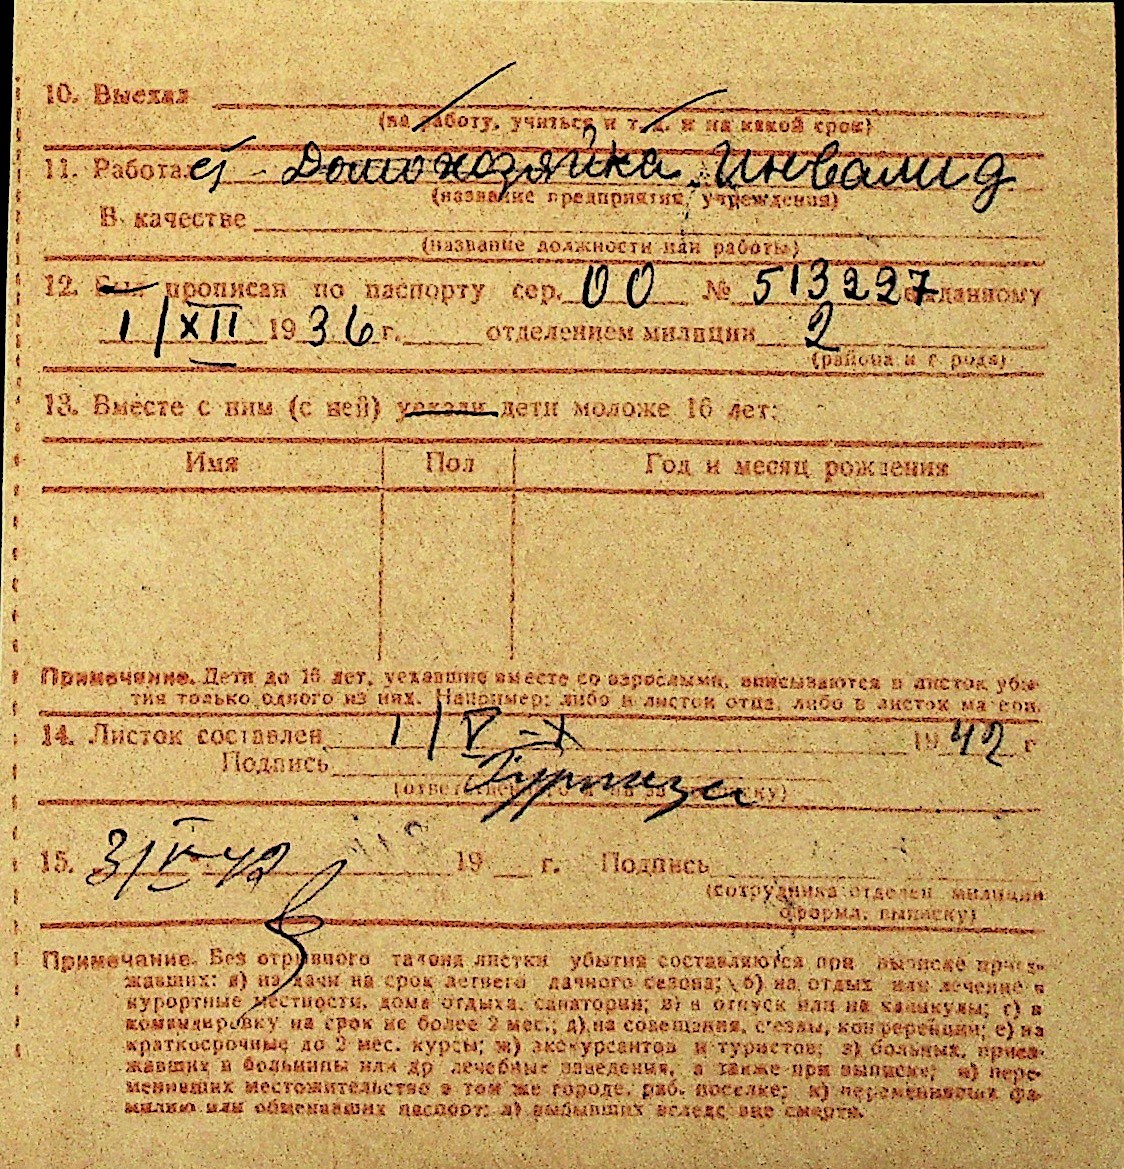 10. Выехал
(на работу, учиться и т. д. и на какой срок)
11. Работа ет - Домохозяйка. Инвалид
(название предприятия, учреждения)
В качестве
(название должности или работы)
12. Был прописан по паспорту сер. 00 № 513227 выданному
1/XII 1936 г. отделением милиции 2
(района и города)
13. Вместе с ним (с ней) уехали дети моложе 16 лет:
Имя Пол Год и месяц рождения
Примечание. Дети до 16 лет, уехавшие вместе со взрослыми, вписываются в листок убы-
тия только одного из них. Например: либо в листок отца, либо в листок матери.
14. Листок составлен 1/V 1942 г
Подпись
15. 3/V-42 19 г. Подпись
(сотрудника отделен. милиции
оформл. выписку)
Примечание. Без отрывного талона листки убытия составляются при выписке приез-
жавших: а) на дачи на срок летнего дачного сезона; б) на отдых или лечение в
курортные местности, дома отдыха, санатории; в) в отпуск или на каникулы; г) в
командировку на срок не более 2 мес.; д) на совещания, с'езды, конференции; е) на
краткосрочные до 2 мес. курсы; ж) экскурсантов и туристов; з) больных, приез-
жавших в больницы или др лечебные заведения, а также при выписке; и) пере-
менивших местожительство в том же городе, раб. поселке; к) переменивших фа-
милию или обменявших паспорт; л) выбывших вследствие смерти.